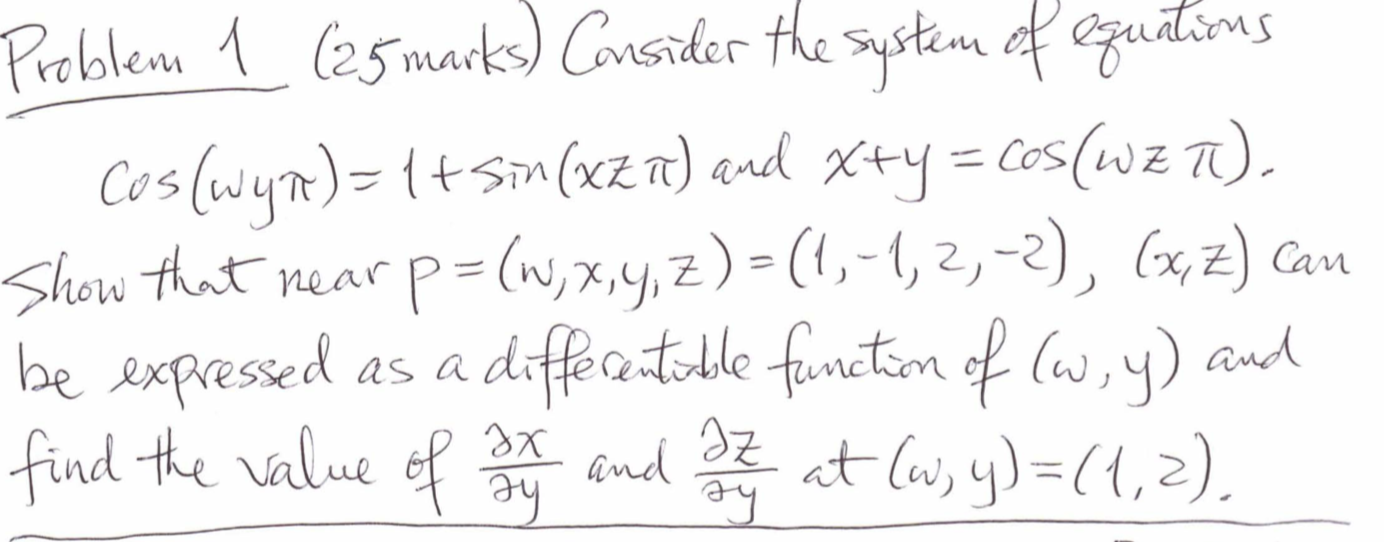 Problem 1 (25 marks) Consider the system of equations
cos(wyπ) = 1 + sin(xzπ) and x+y = cos(wzπ).
Show that near p = (w,x,y,z) = (1,-1,2,-2), (x,z) can
be expressed as a differentiable function of (w,y) and
find the value of ∂x/∂y and ∂z/∂y at (w,y) = (1,2).